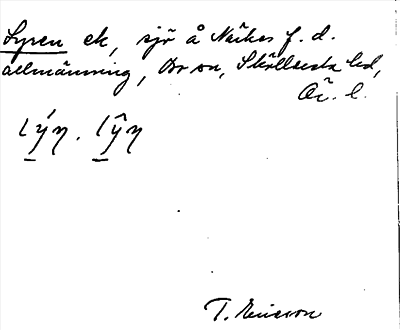 Lyren ek, sjö å Näkes f. d.
allmänning, Bo sn, Sköllersta hd,
Ör. l.
lýŋ. lŷŋ
T. Ericson